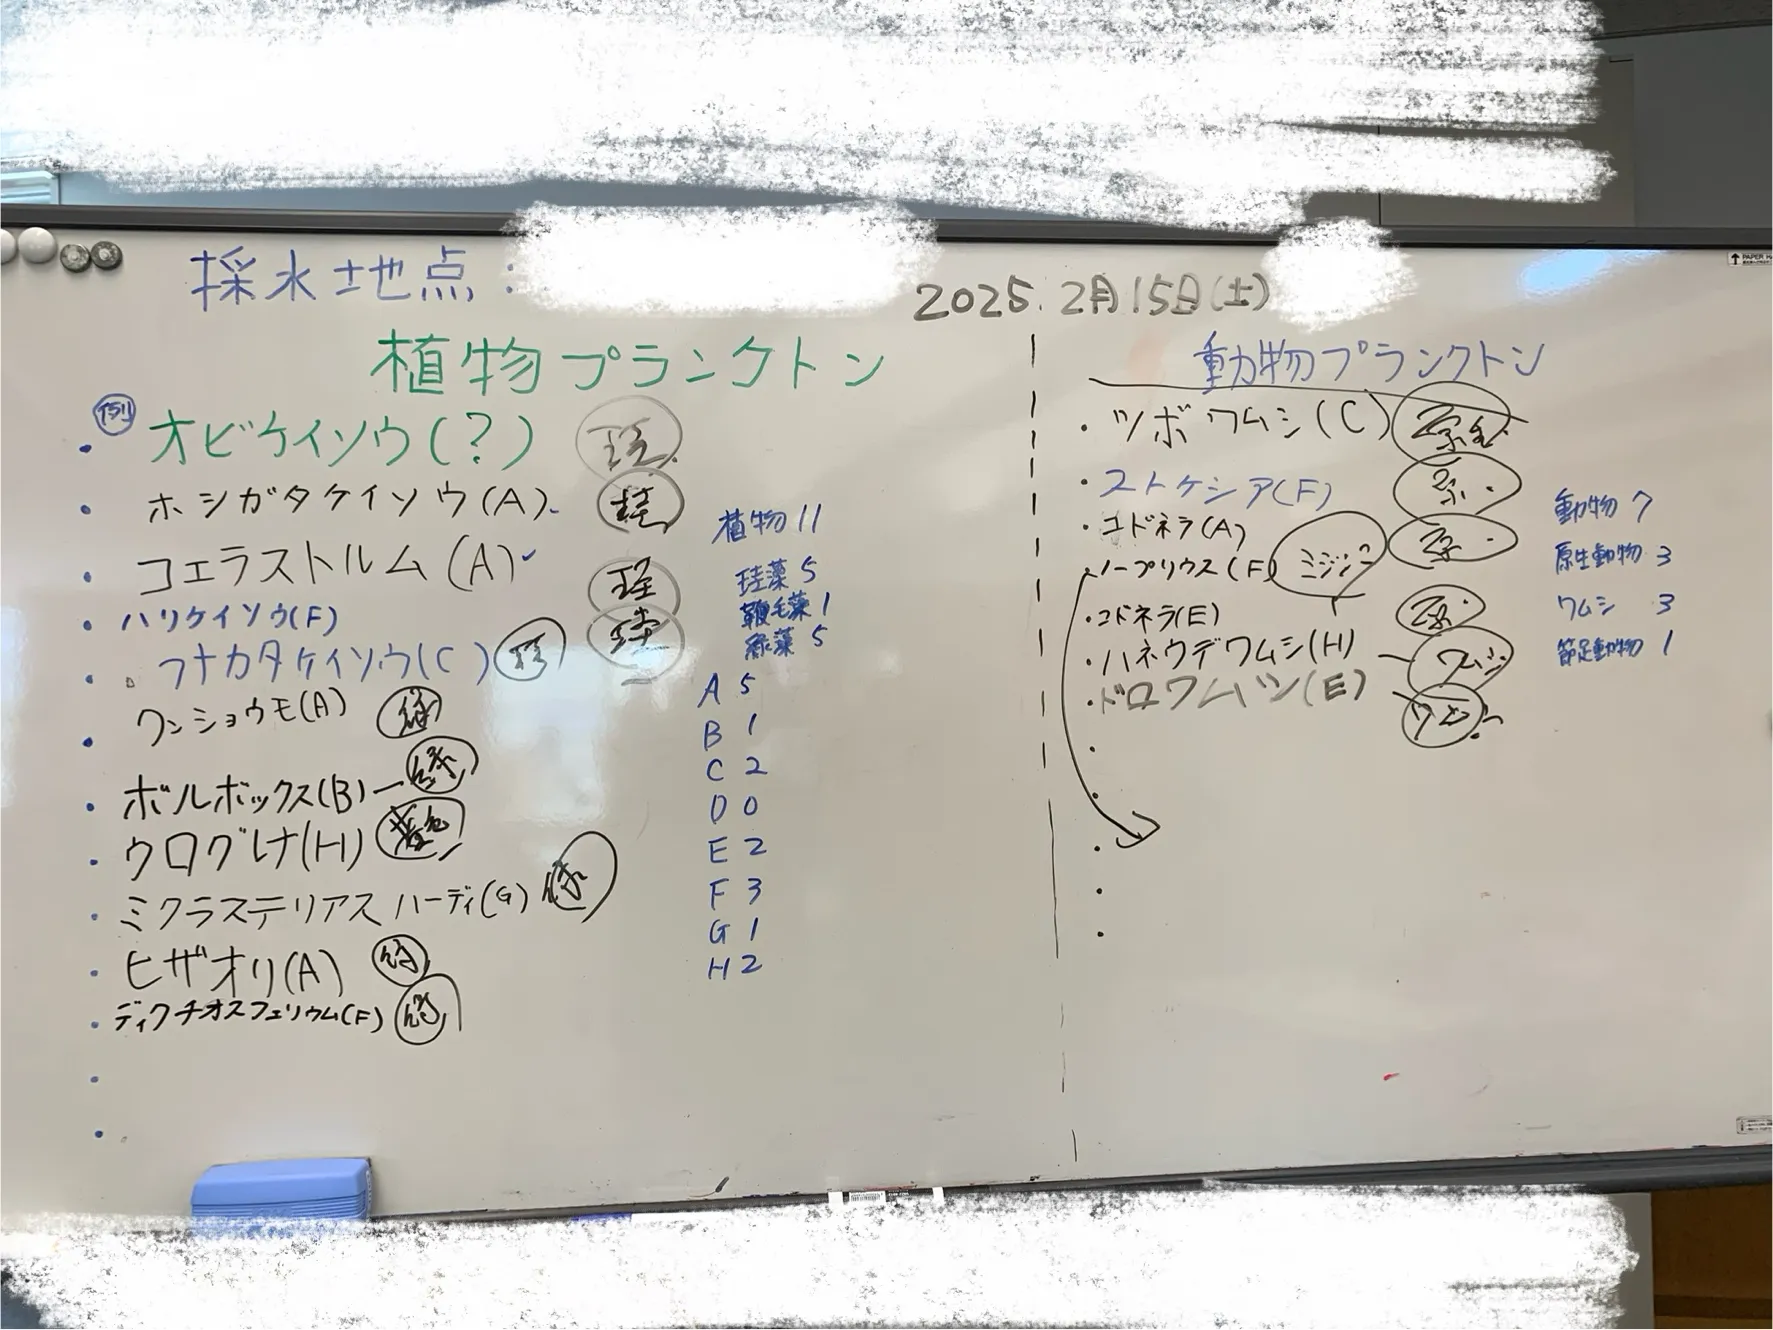 採水地点:
2025.2月15日(土)
植物プランクトン
例
・オビケイソウ(?) 珪
・ホシガタケイソウ(A) 珪
・コエラストルム(A) 珪
・ハリケイソウ(F) 珪
・フナカタケイソウ(C) 珪
・クンショウモ(A) 緑
・ボルボックス(B) 緑
・ウログレナ(H) 黄色
・ミクラステリアス ハーディ(G) 緑
・ヒザオリ(A) 緑
・ディクチオスフェリウム(F) 緑
植物 11
珪藻 5
鞭毛藻 1
緑藻 5
A 5
B 1
C 2
D 0
E 2
F 3
G 1
H 2
動物プランクトン
・ツボワムシ(C)
・ストケシア(F) 原
・コドネラ(A) 原
・ノープリウス(F) ミジンコ
・コドネラ(E) 原
・ハネウデワムシ(H) ワムシ
・ドロワムシ(E)
動物 7
原生動物 3
ワムシ 3
節足動物 1